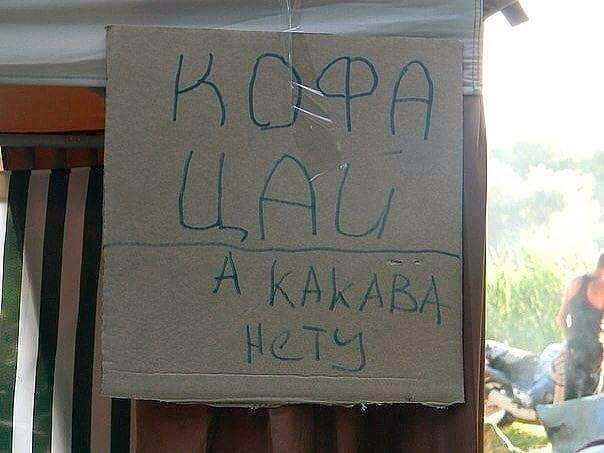 КОФА
ЦАЙ
А КАКАВА
НЕТУ